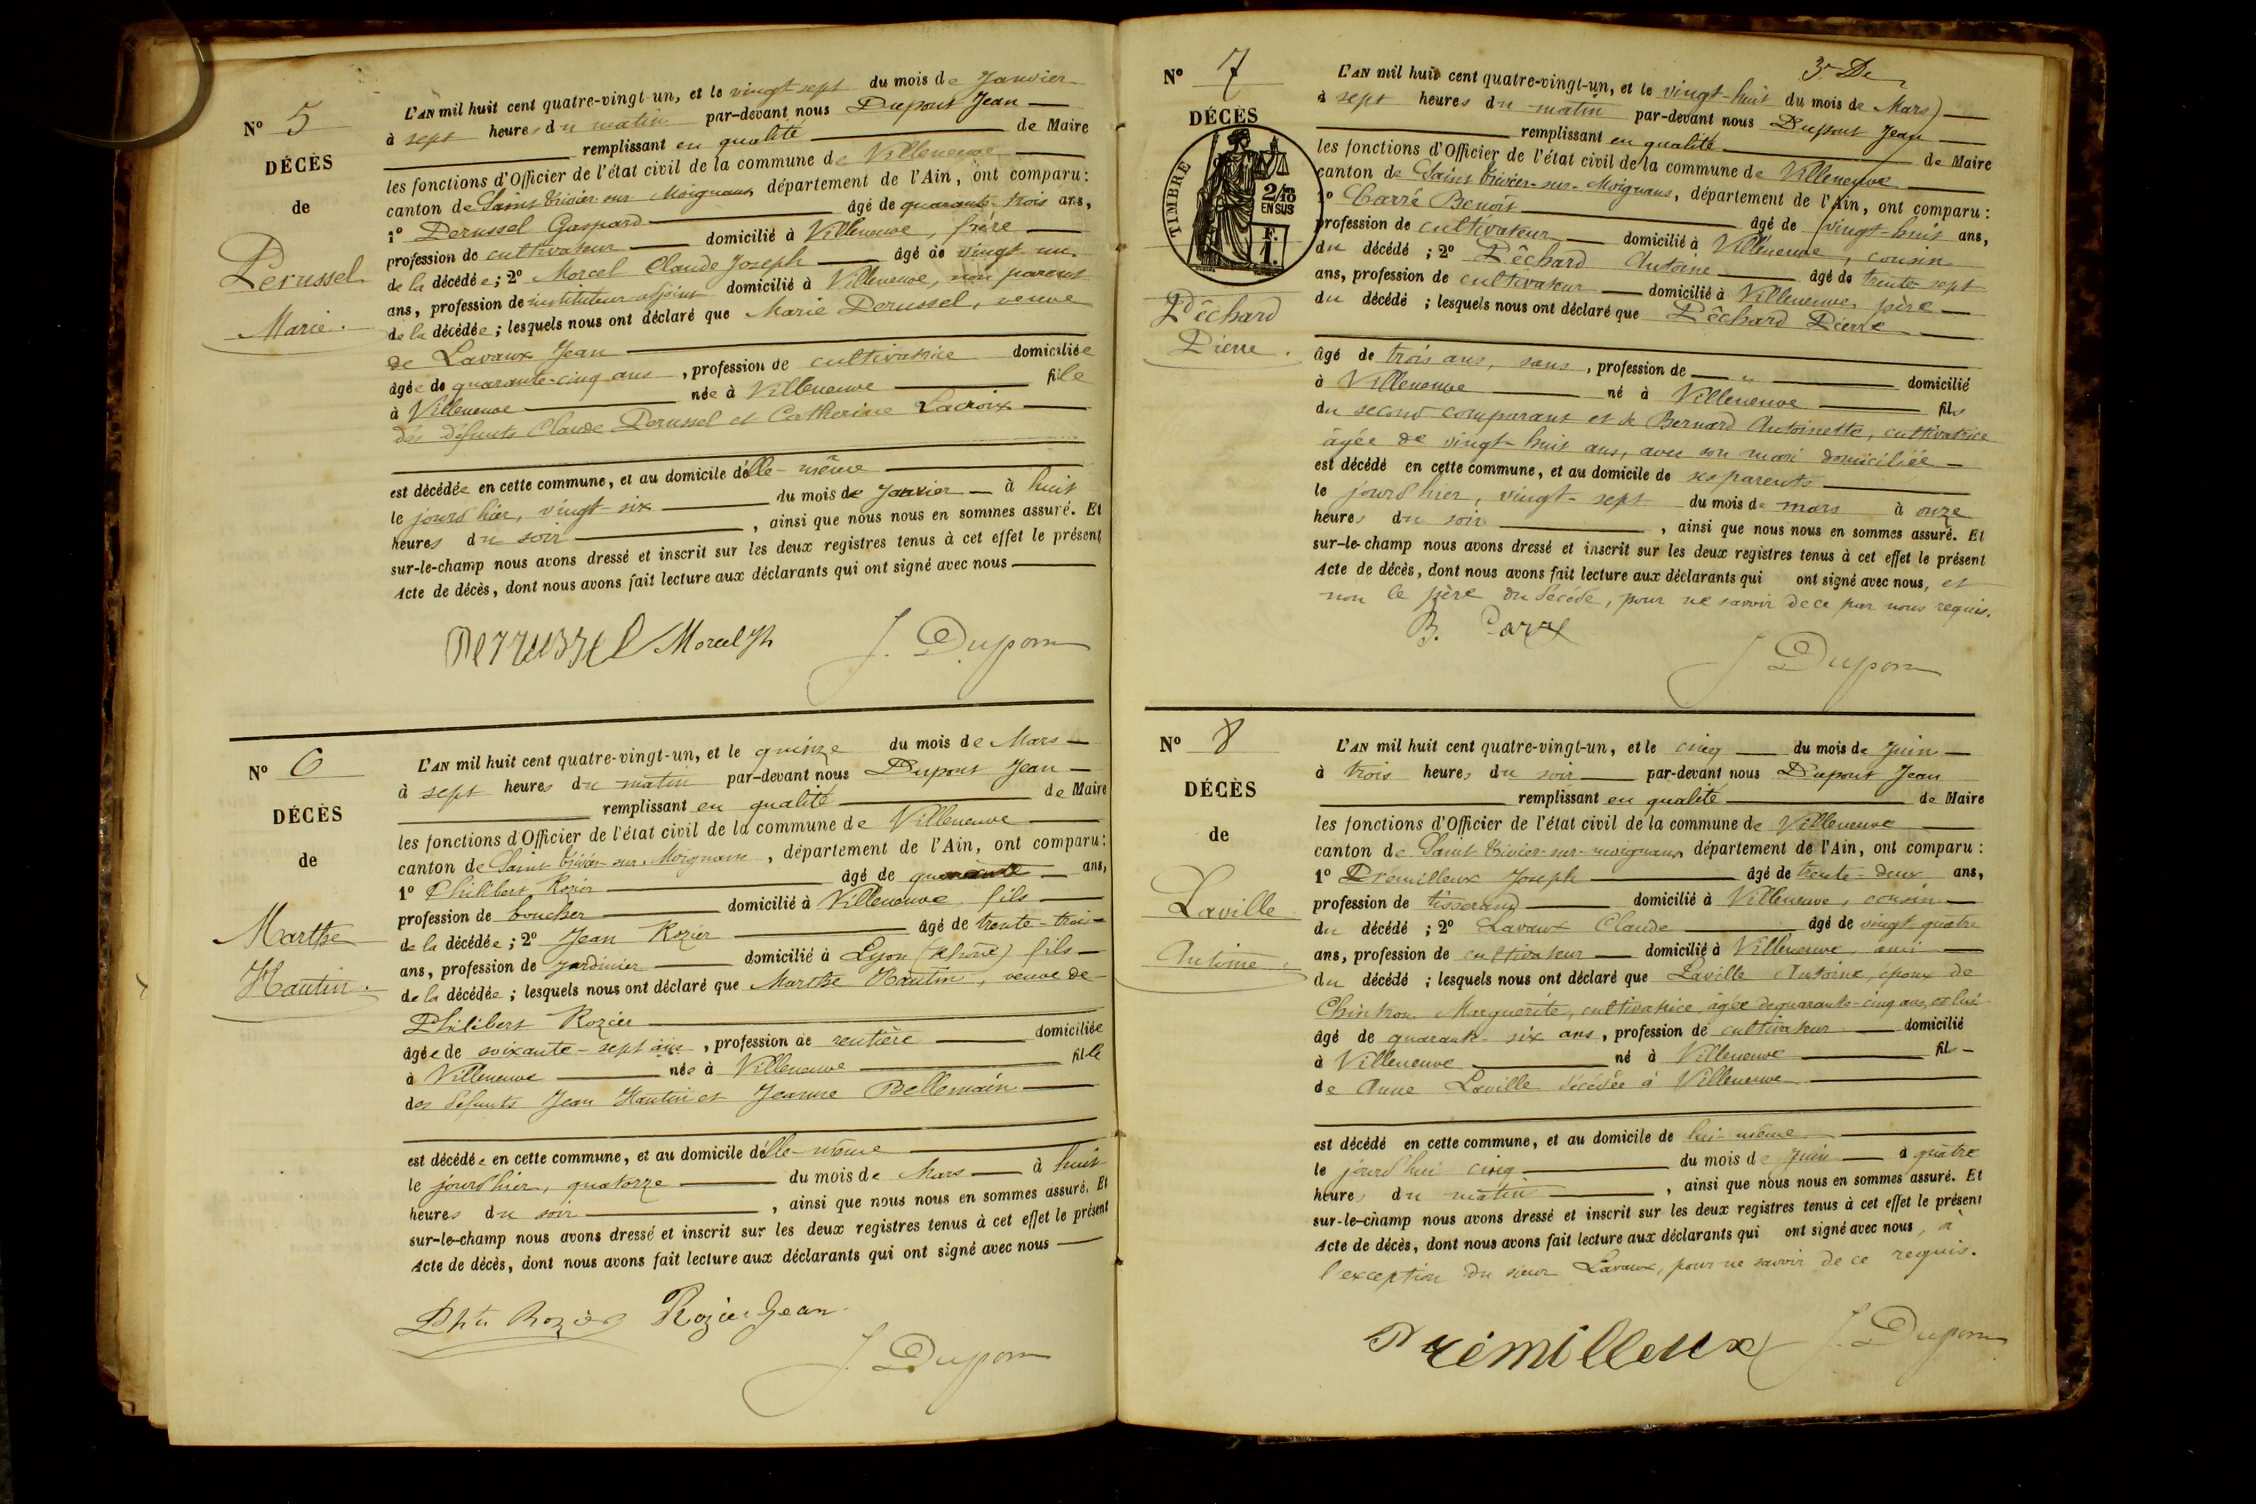 N° 5
DÉCÈS
de
Perussel
Marie.
L'AN mil huit cent quatre-vingt-un, et le vingt sept du mois de Janvier
à sept heures du matin par-devant nous Dupont Jean
remplissant en qualité de Maire
les fonctions d'Officier de l'état civil de la commune de Villeneuve
canton de Saint Trivier sur Moignans, département de l'Ain, ont comparu:
1° Perussel Gaspard âgé de quarante-trois ans,
profession de cultivateur domicilié à Villeneuve, frère
de la décédée; 2° Morcel Claude Joseph âgé de vingt un
ans, profession de instituteur adjoint domicilié à Villeneuve, non parent
de la décédée; lesquels nous ont déclaré que Marie Perussel, veuve
de Lavaux Jean
âgée de quarante-cinq ans, profession de cultivatrice domiciliée
à Villeneuve née à Villeneuve fille
des défunts Claude Perussel et Catherine Lacroix
est décédée en cette commune, et au domicile d'elle-même
le jourd'hier, vingt-six du mois de Janvier à huit
heures du soir, ainsi que nous nous en sommes assuré. Et
sur-le-champ nous avons dressé et inscrit sur les deux registres tenus à cet effet le présent
Acte de décès, dont nous avons fait lecture aux déclarants qui ont signé avec nous
Perrussel Morcel Jh J. Dupon
N° 6
DÉCÈS
de
Marthe
Hautin.
L'AN mil huit cent quatre-vingt-un, et le quinze du mois de Mars
à sept heures du matin par-devant nous Dupont Jean
remplissant en qualité de Maire
les fonctions d'Officier de l'état civil de la commune de Villeneuve
canton de Saint Trivier-sur-Moignans, département de l'Ain, ont comparu:
1° Philibert Rozier âgé de quarante ans,
profession de boucher domicilié à Villeneuve fils
de la décédée; 2° Jean Rozier âgé de trente-trois
ans, profession de jardinier domicilié à Lyon (Rhône) fils
de la décédée; lesquels nous ont déclaré que Marthe Hautin, veuve de
Philibert Rozier
âgée de soixante-sept ans, profession de rentière domiciliée
à Villeneuve née à Villeneuve fille
des défunts Jean Hautin et Jeanne Bellemain
est décédée en cette commune, et au domicile d'elle-même
le jourd'hier, quatorze du mois de Mars à huit
heures du soir, ainsi que nous nous en sommes assuré. Et
sur-le-champ nous avons dressé et inscrit sur les deux registres tenus à cet effet le présent
Acte de décès, dont nous avons fait lecture aux déclarants qui ont signé avec nous
Pht Rozier Rozier Jean
J. Dupon
3e De
N° 7
DÉCÈS
TIMBRE
2/10
EN SUS
F.
1.
Pêchard
Pierre.
L'AN mil huit cent quatre-vingt-un, et le vingt-huit du mois de Mars
à sept heures du matin par-devant nous Dupont Jean
remplissant en qualité de Maire
les fonctions d'Officier de l'état civil de la commune de Villeneuve
canton de Saint Trivier-sur-Moignans, département de l'Ain, ont comparu:
1° Carré Benoit âgé de vingt-huit ans,
profession de cultivateur domicilié à Villeneuve, cousin
du décédé; 2° Pêchard Antoine âgé de trente sept
ans, profession de cultivateur domicilié à Villeneuve, père
du décédé; lesquels nous ont déclaré que Pêchard Pierre
âgé de trois ans, sans, profession de domicilié
à Villeneuve né à Villeneuve fils
du second comparant et de Bernard Antoinette, cultivatrice
âgée de vingt-huit ans, avec son mari domiciliée
est décédé en cette commune, et au domicile de ses parents
le jourd'hier, vingt-sept du mois de mars à onze
heures du soir, ainsi que nous nous en sommes assuré. Et
sur-le-champ nous avons dressé et inscrit sur les deux registres tenus à cet effet le présent
Acte de décès, dont nous avons fait lecture aux déclarants qui ont signé avec nous, et
non le père du décédé, pour ne savoir de ce par nous requis.
B. Carré
J Dupon
N° 8
DÉCÈS
de
Laville
Antoine.
L'AN mil huit cent quatre-vingt-un, et le cinq du mois de Juin
à trois heures du soir par-devant nous Dupont Jean
remplissant en qualité de Maire
les fonctions d'Officier de l'état civil de la commune de Villeneuve
canton de Saint Trivier-sur-moignans, département de l'Ain, ont comparu:
1° Prémilleux Joseph âgé de trente-deux ans,
profession de tisserand domicilié à Villeneuve, cousin
du décédé; 2° Lavaux Claude âgé de vingt quatre
ans, profession de cultivateur domicilié à Villeneuve, ami
du décédé; lesquels nous ont déclaré que Laville Antoine, époux de
Chintron Marguerite, cultivatrice, âgée de quarante-cinq ans, et lui
âgé de quarante-six ans, profession de cultivateur domicilié
à Villeneuve né à Villeneuve fils
de Anne Laville décédée à Villeneuve
est décédé en cette commune, et au domicile de lui-même
le jourd'hui cinq du mois de Juin à quatre
heures du matin, ainsi que nous nous en sommes assuré. Et
sur-le-champ nous avons dressé et inscrit sur les deux registres tenus à cet effet le présent
Acte de décès, dont nous avons fait lecture aux déclarants qui ont signé avec nous, à
l'exception du sieur Lavaux, pour ne savoir de ce requis.
Prémilleux J. Dupon